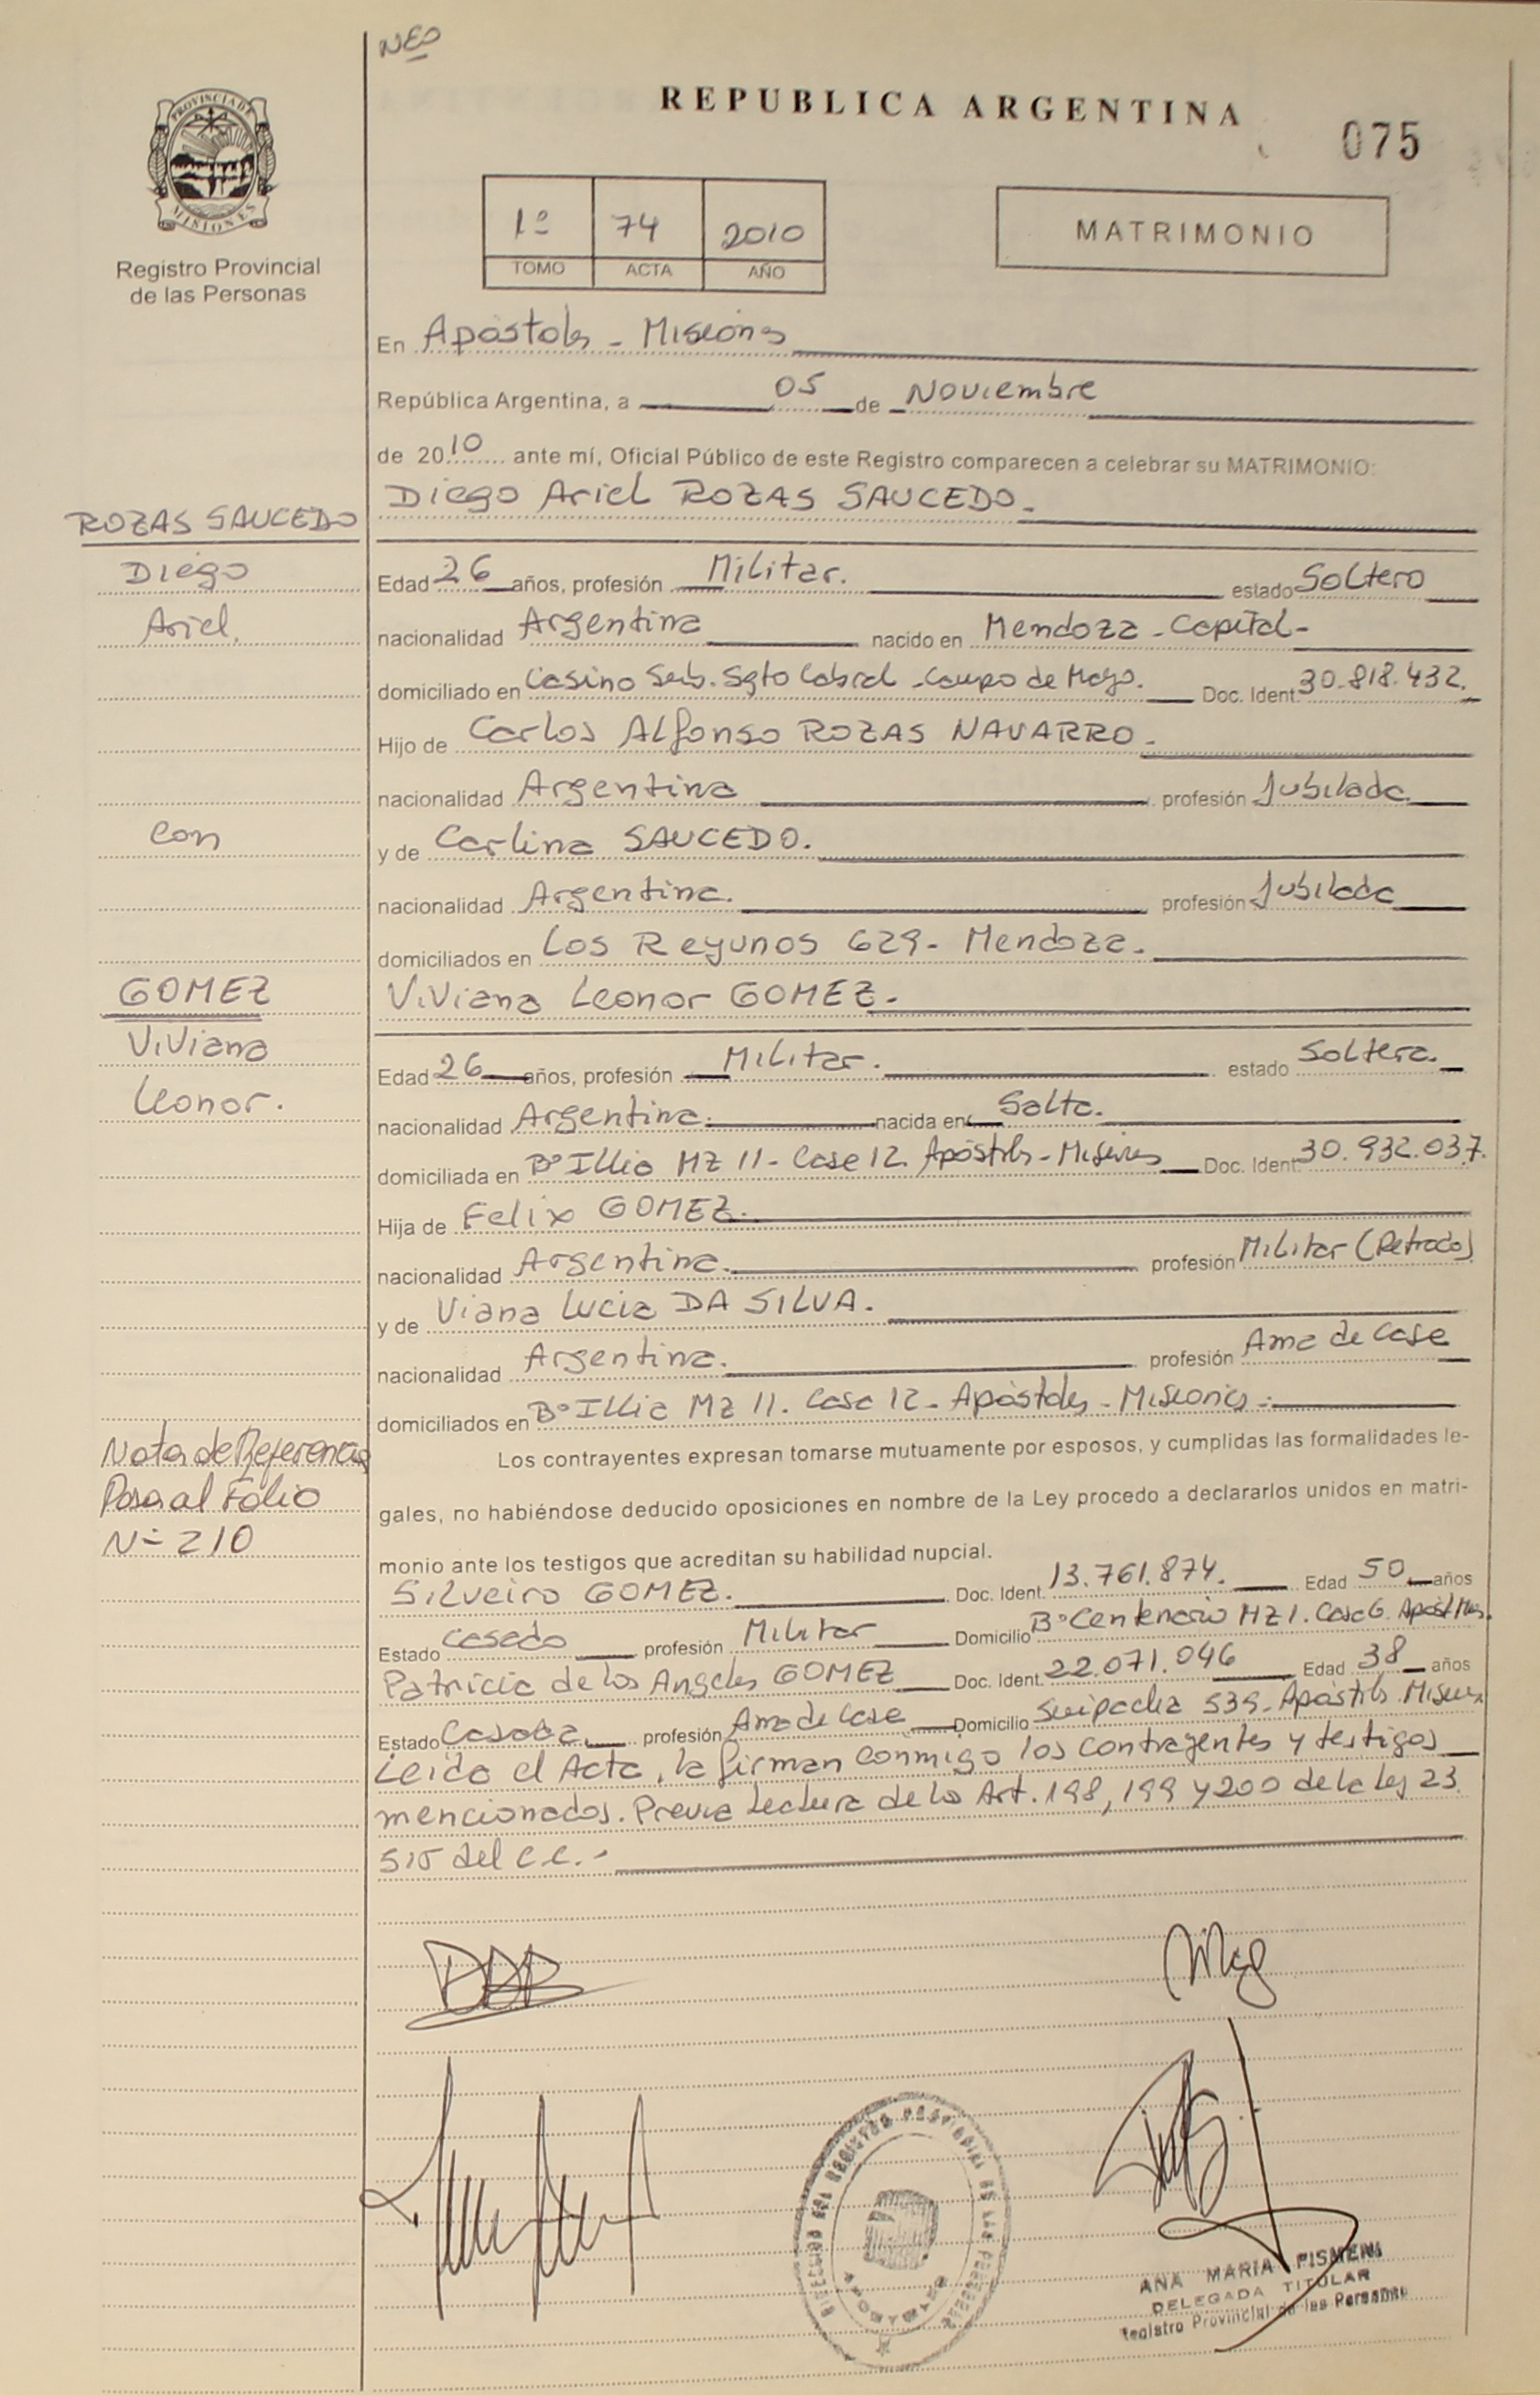 NEO
REPUBLICA ARGENTINA
075
PROVINCIA DE
MISIONES
Registro Provincial
de las Personas
1º 74 2010
TOMO ACTA AÑO
MATRIMONIO
En Apóstoles - Misiones
República Argentina, a 05 de Noviembre
de 2010 ante mí, Oficial Público de este Registro comparecen a celebrar su MATRIMONIO:
ROZAS SAUCEDO
Diego Ariel ROZAS SAUCEDO.
Diego
Edad 26 años, profesión Militar. estado Soltero
Ariel.
nacionalidad Argentina nacido en Mendoza - Capital -
domiciliado en Casino Sub. Sgto Cabral - Campo de Mayo. Doc. Ident. 30.818.432.
Hijo de Carlos Alfonso ROZAS NAVARRO.
nacionalidad Argentina profesión Jubilado.
con
y de Carlina SAUCEDO.
nacionalidad Argentina. profesión Jubilada
domiciliados en Los Reyunos 629 - Mendoza.
GOMEZ
Viviana Leonor GOMEZ.
Viviana
Edad 26 años, profesión Militar. estado Soltera.
Leonor.
nacionalidad Argentina. nacida en Salta.
domiciliada en Bº Illia Mz 11 - Casa 12. Apóstoles - Misiones Doc. Ident. 30.932.037.
Hija de Felix GOMEZ.
nacionalidad Argentina. profesión Militar (Retirado)
y de Viana Lucia DA SILVA.
nacionalidad Argentina. profesión Ama de Casa
domiciliados en Bº Illia Mz 11. Casa 12 - Apóstoles - Misiones.
Nota de Referencia
Pasa al Folio
Nº 210
Los contrayentes expresan tomarse mutuamente por esposos, y cumplidas las formalidades le-
gales, no habiéndose deducido oposiciones en nombre de la Ley procedo a declararlos unidos en matri-
monio ante los testigos que acreditan su habilidad nupcial.
Silveiro GOMEZ. Doc. Ident. 13.761.874. Edad 50 años
Estado Casado profesión Militar Domicilio Bº Centenario Mz 1. Casa 6. Apóst. Mnes.
Patricia de los Angeles GOMEZ Doc. Ident. 22.071.046 Edad 38 años
Estado Casada profesión Ama de Casa Domicilio Suipacha 539 - Apóstoles. Misiones
Leída el Acta, la firman conmigo los contrayentes y testigos
mencionados. Previa Lectura de los Art. 198, 199 y 200 de la Ley 23.
515 del C.C. -
DIRECCION DEL REGISTRO PROVINCIAL DE LAS PERSONAS
ANA MARIA PISMENI
DELEGADA TITULAR
Registro Provincial de las Personas